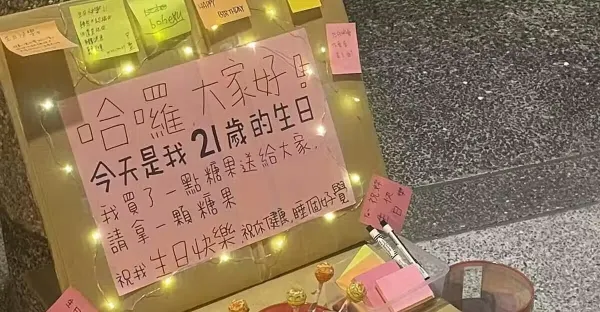 boheku
HAPPY
BIRTHDAY
哈囉,大家好!
今天是我21歲的生日
我買了一點糖果送給大家,
請拿一顆糖果
祝我生日快樂,祝你健康,睡個好覺